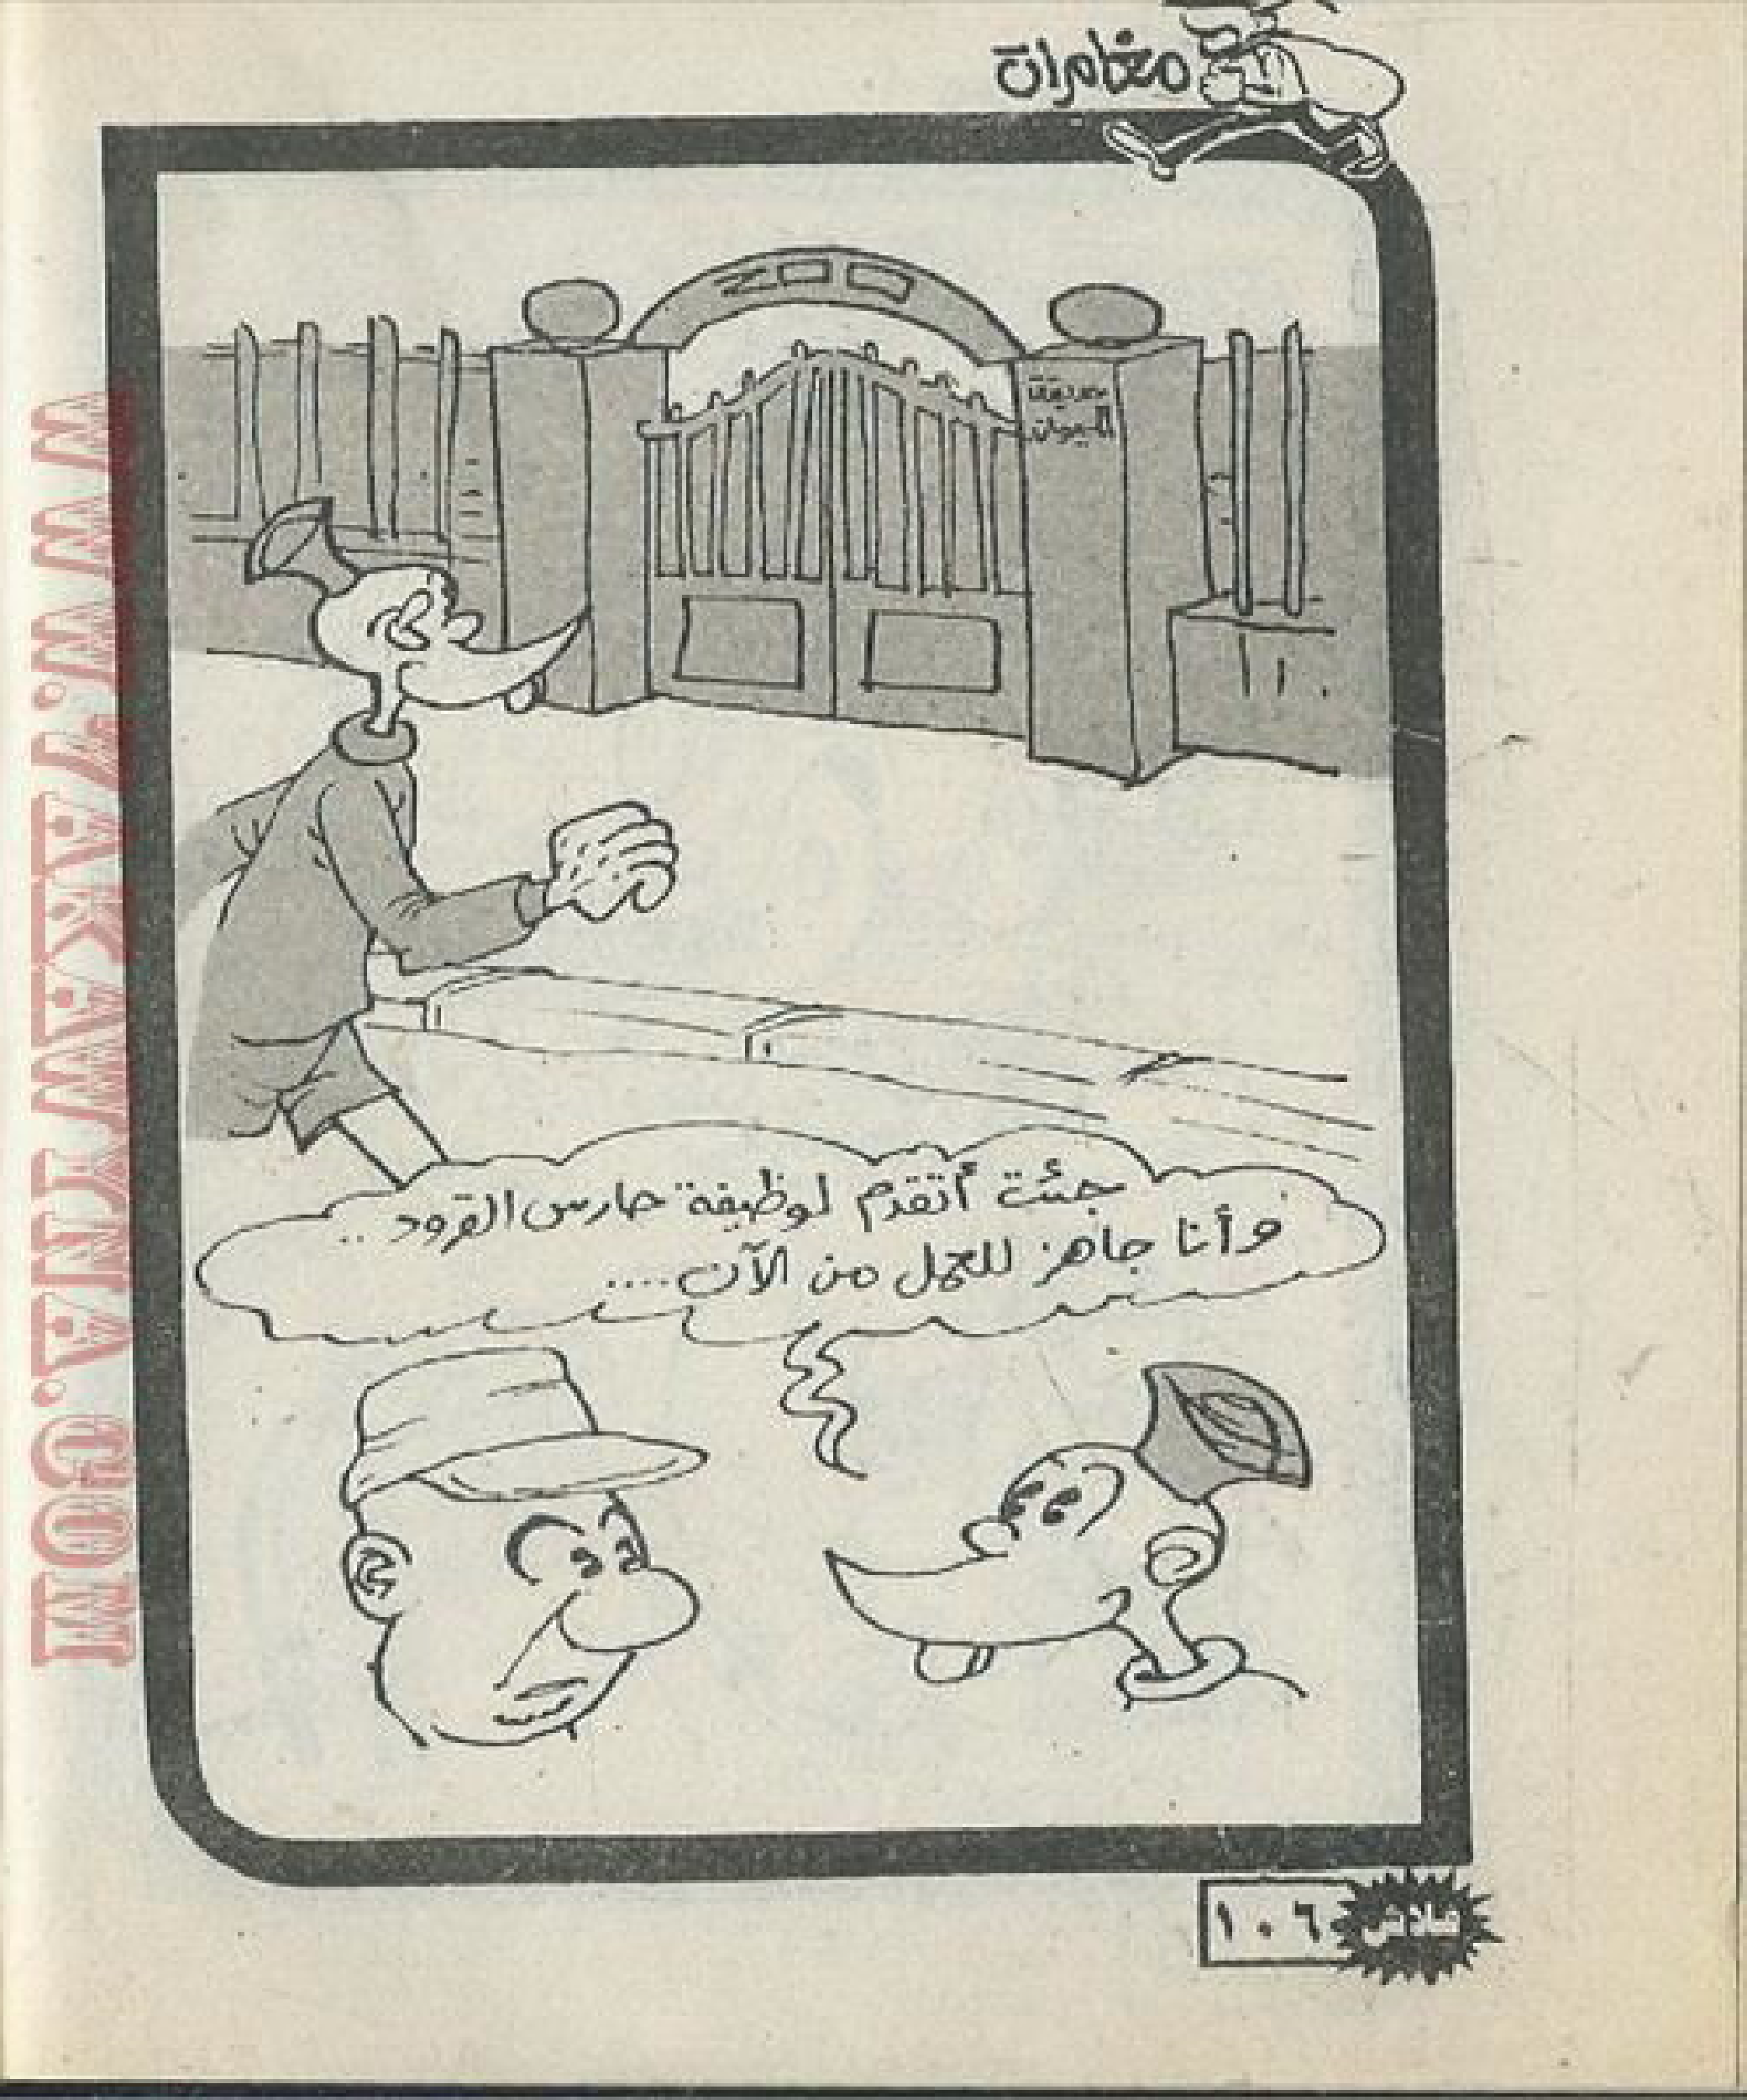 مغامرات
ZOO
حديقة
الحيوان
جئت أتقدم لوظيفة حارس القرود..
وأنا جاهز للعمل من الآن....
١٠٦
WWW.7AKAWYINA.COM